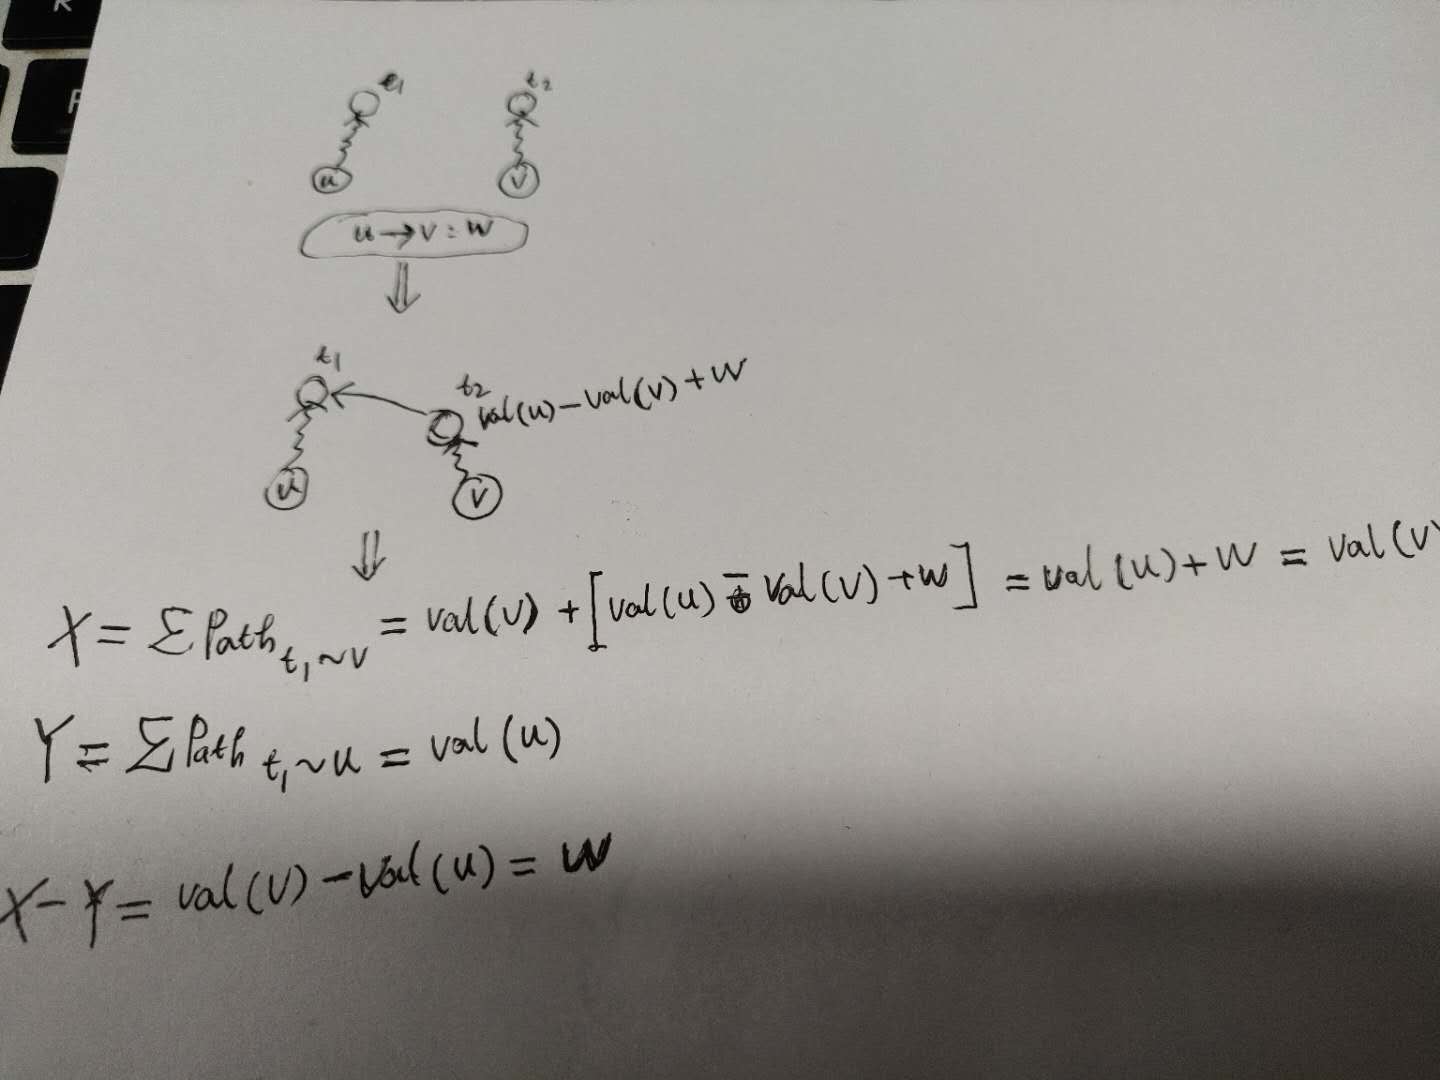 t₁ t₂
u v
u→v:w
⇓
t₁
t₂ val(u)-val(v)+w
u v
⇓
X=ΣPath t₁~v = val(v)+[val(u)-val(v)+w] = val(u)+w = val(v)
Y=ΣPath t₁~u = val(u)
X-Y= val(v)-val(u)=w